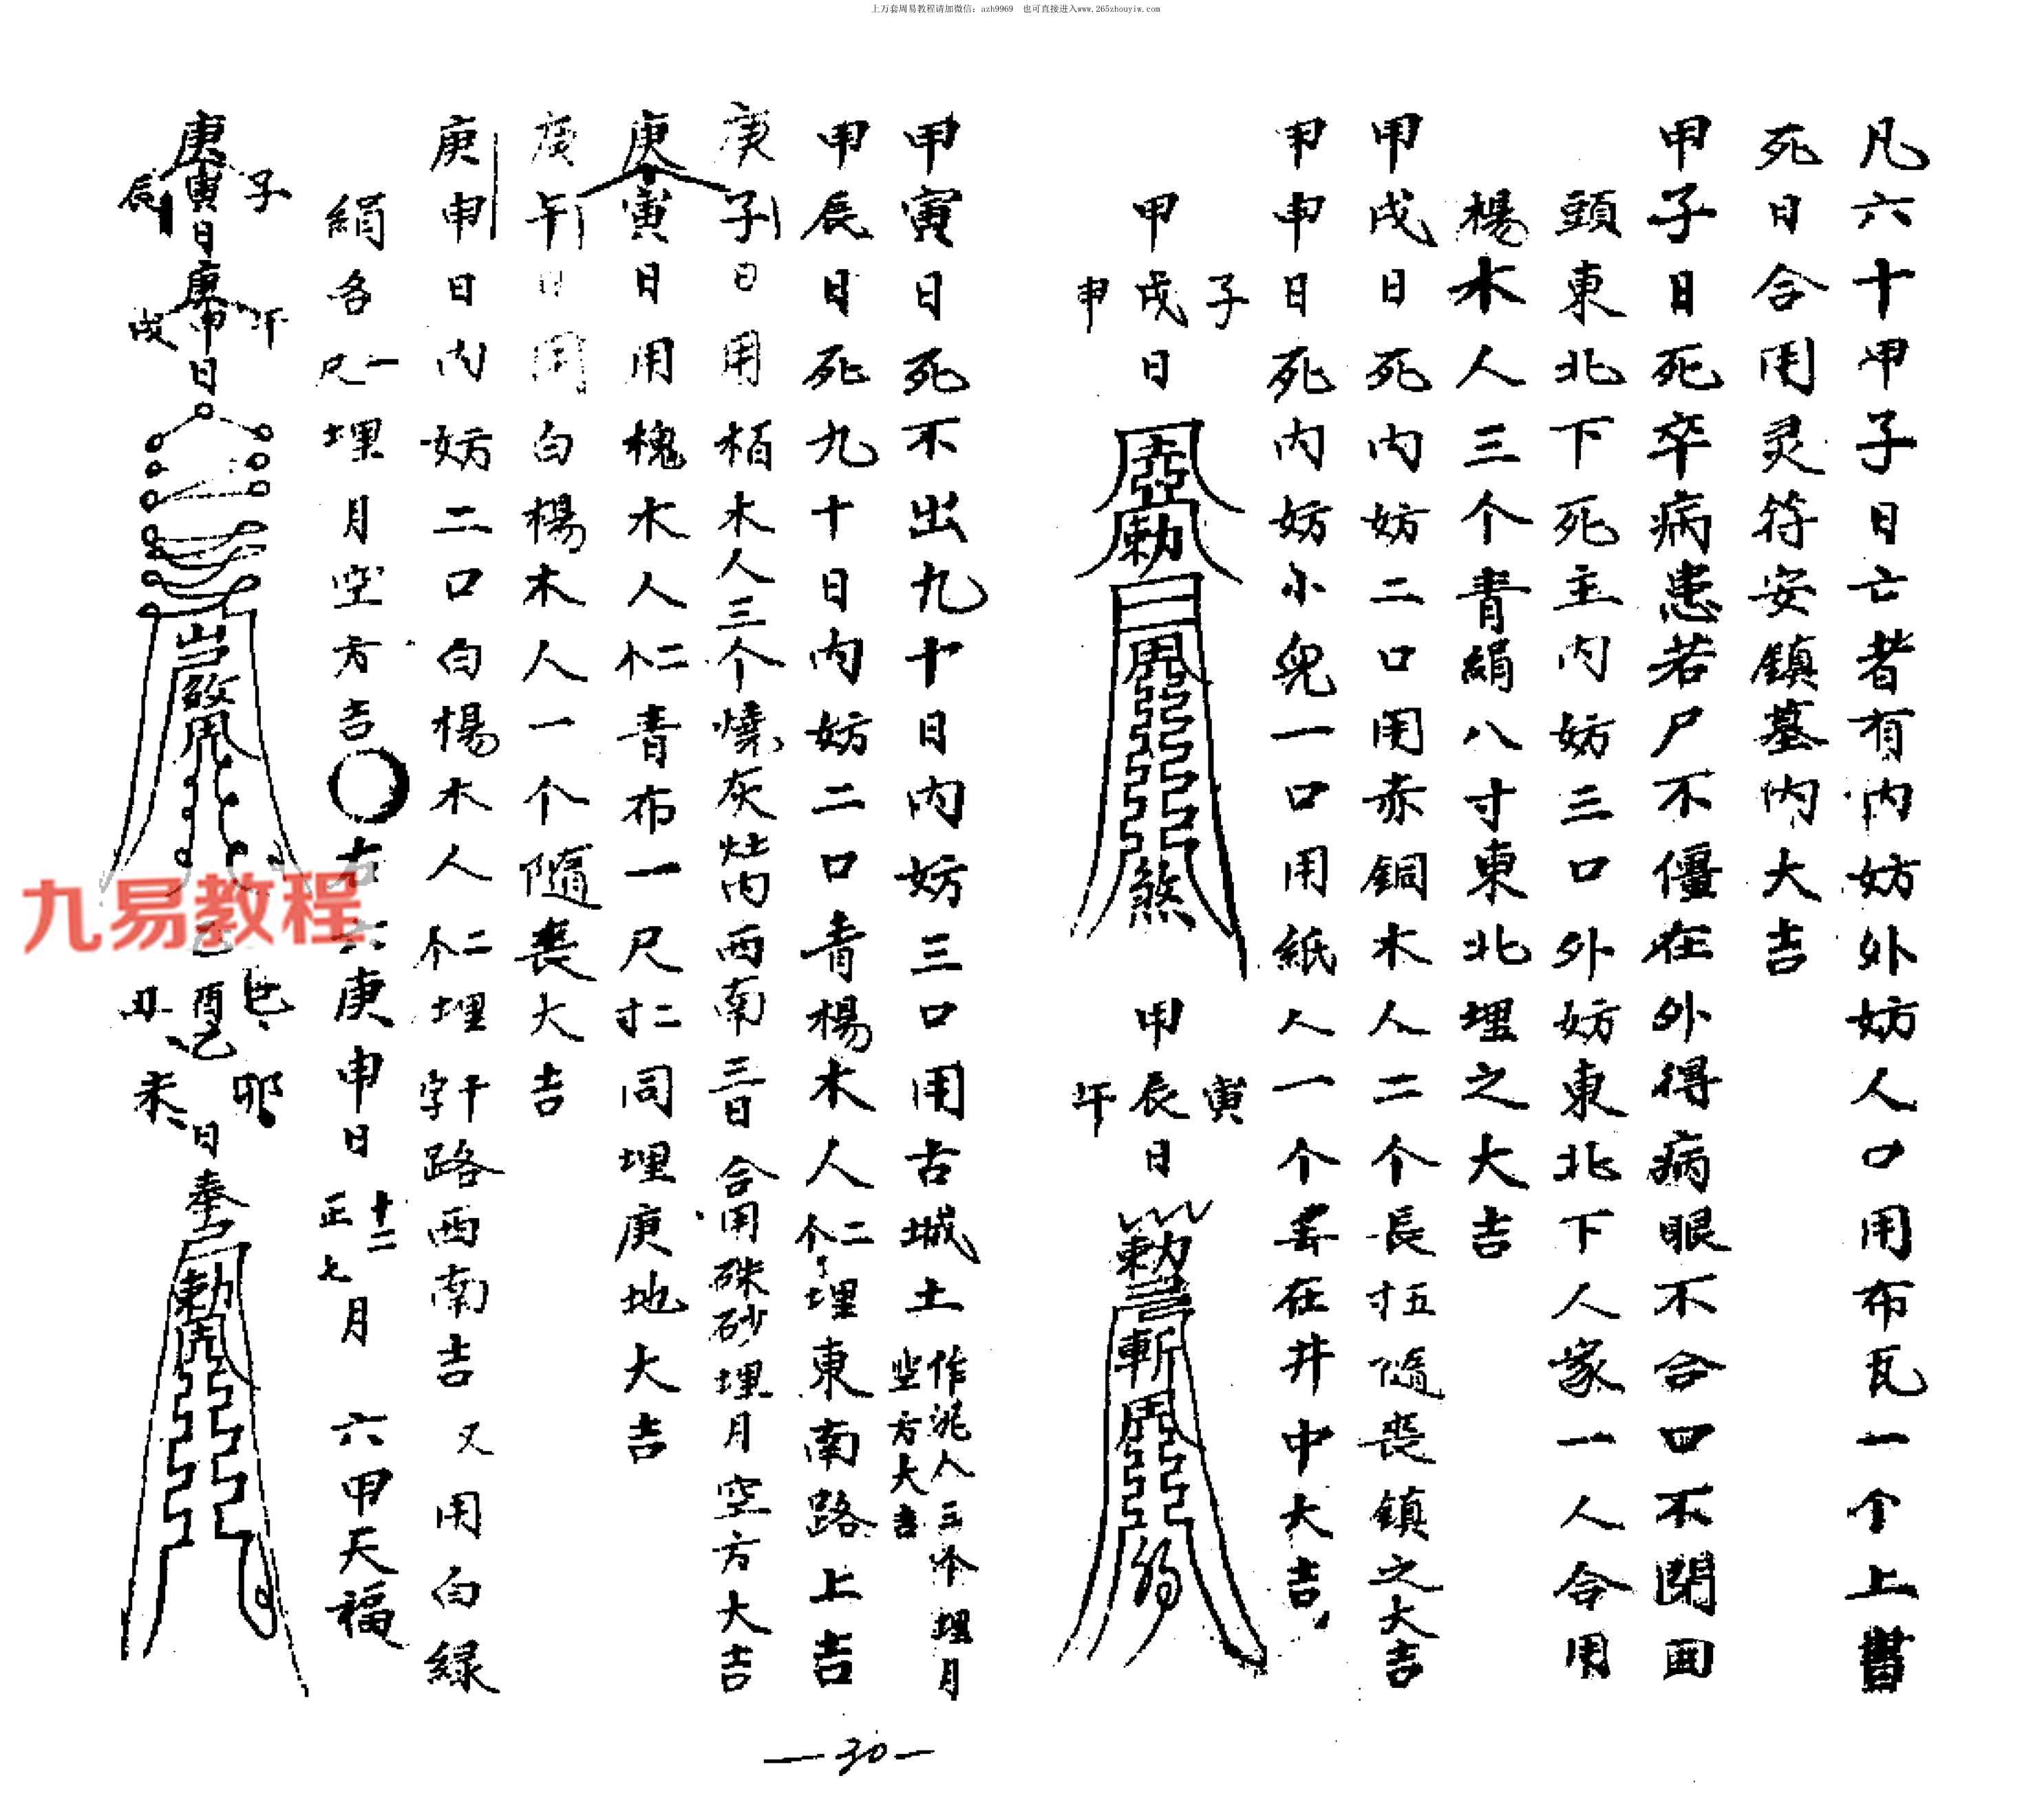 上万套周易教程请加微信：azh9969 也可直接进入www.265zhouyiw.com
凡六十甲子日亡者有内妨外妨人口用布瓦一个上書
死日合用灵符安鎮墓内大吉
甲子日死卒病患若尸不僵在外得病眼不合口不閉面
頭東北下死主内妨三口外妨東北下人家一人合用
楊木人三个青絹八寸東北埋之大吉
甲戌日死内妨二口用赤銅木人二个長五寸隨喪鎮之大吉
甲申日死内妨小兒一口用紙人一个弄在井中大吉
甲子戌申日
勅
煞
甲寅辰午日
勅
斬
甲寅日死不出九十日内妨三口用古城土作泥人三个埋月空方大吉
甲辰日死九十日内妨二口青楊木人二个埋東南路上吉
庚子日用栢木人三个燒灰灶内西南三日合用硃砂埋月空方大吉
庚寅日用槐木人二个青布一尺二寸同埋庚地大吉
庚午日用白楊木人一个隨喪大吉
庚申日内妨二口白楊木人二个埋十字路西南吉又用白緑
絹各一尺埋月空方吉〇右六庚申日十二正七月六甲天福
庚子寅辰日庚午申戌日
乙巳酉丑乙卯未日奉
勅
九易教程
—30—